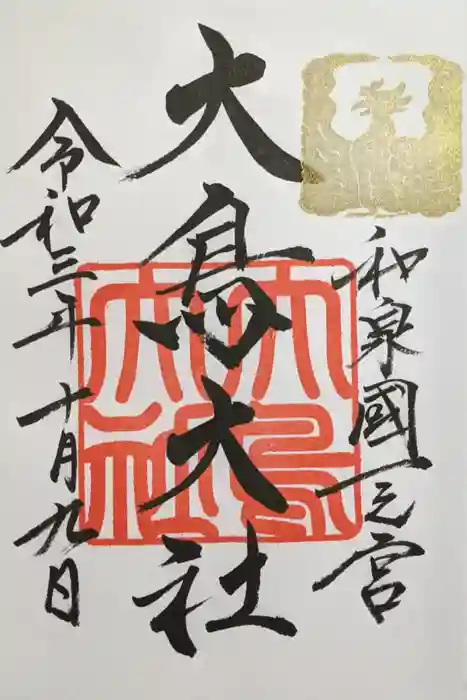 和泉國一之宮
大鳥大社
大鳥大社
令和三年十月九日